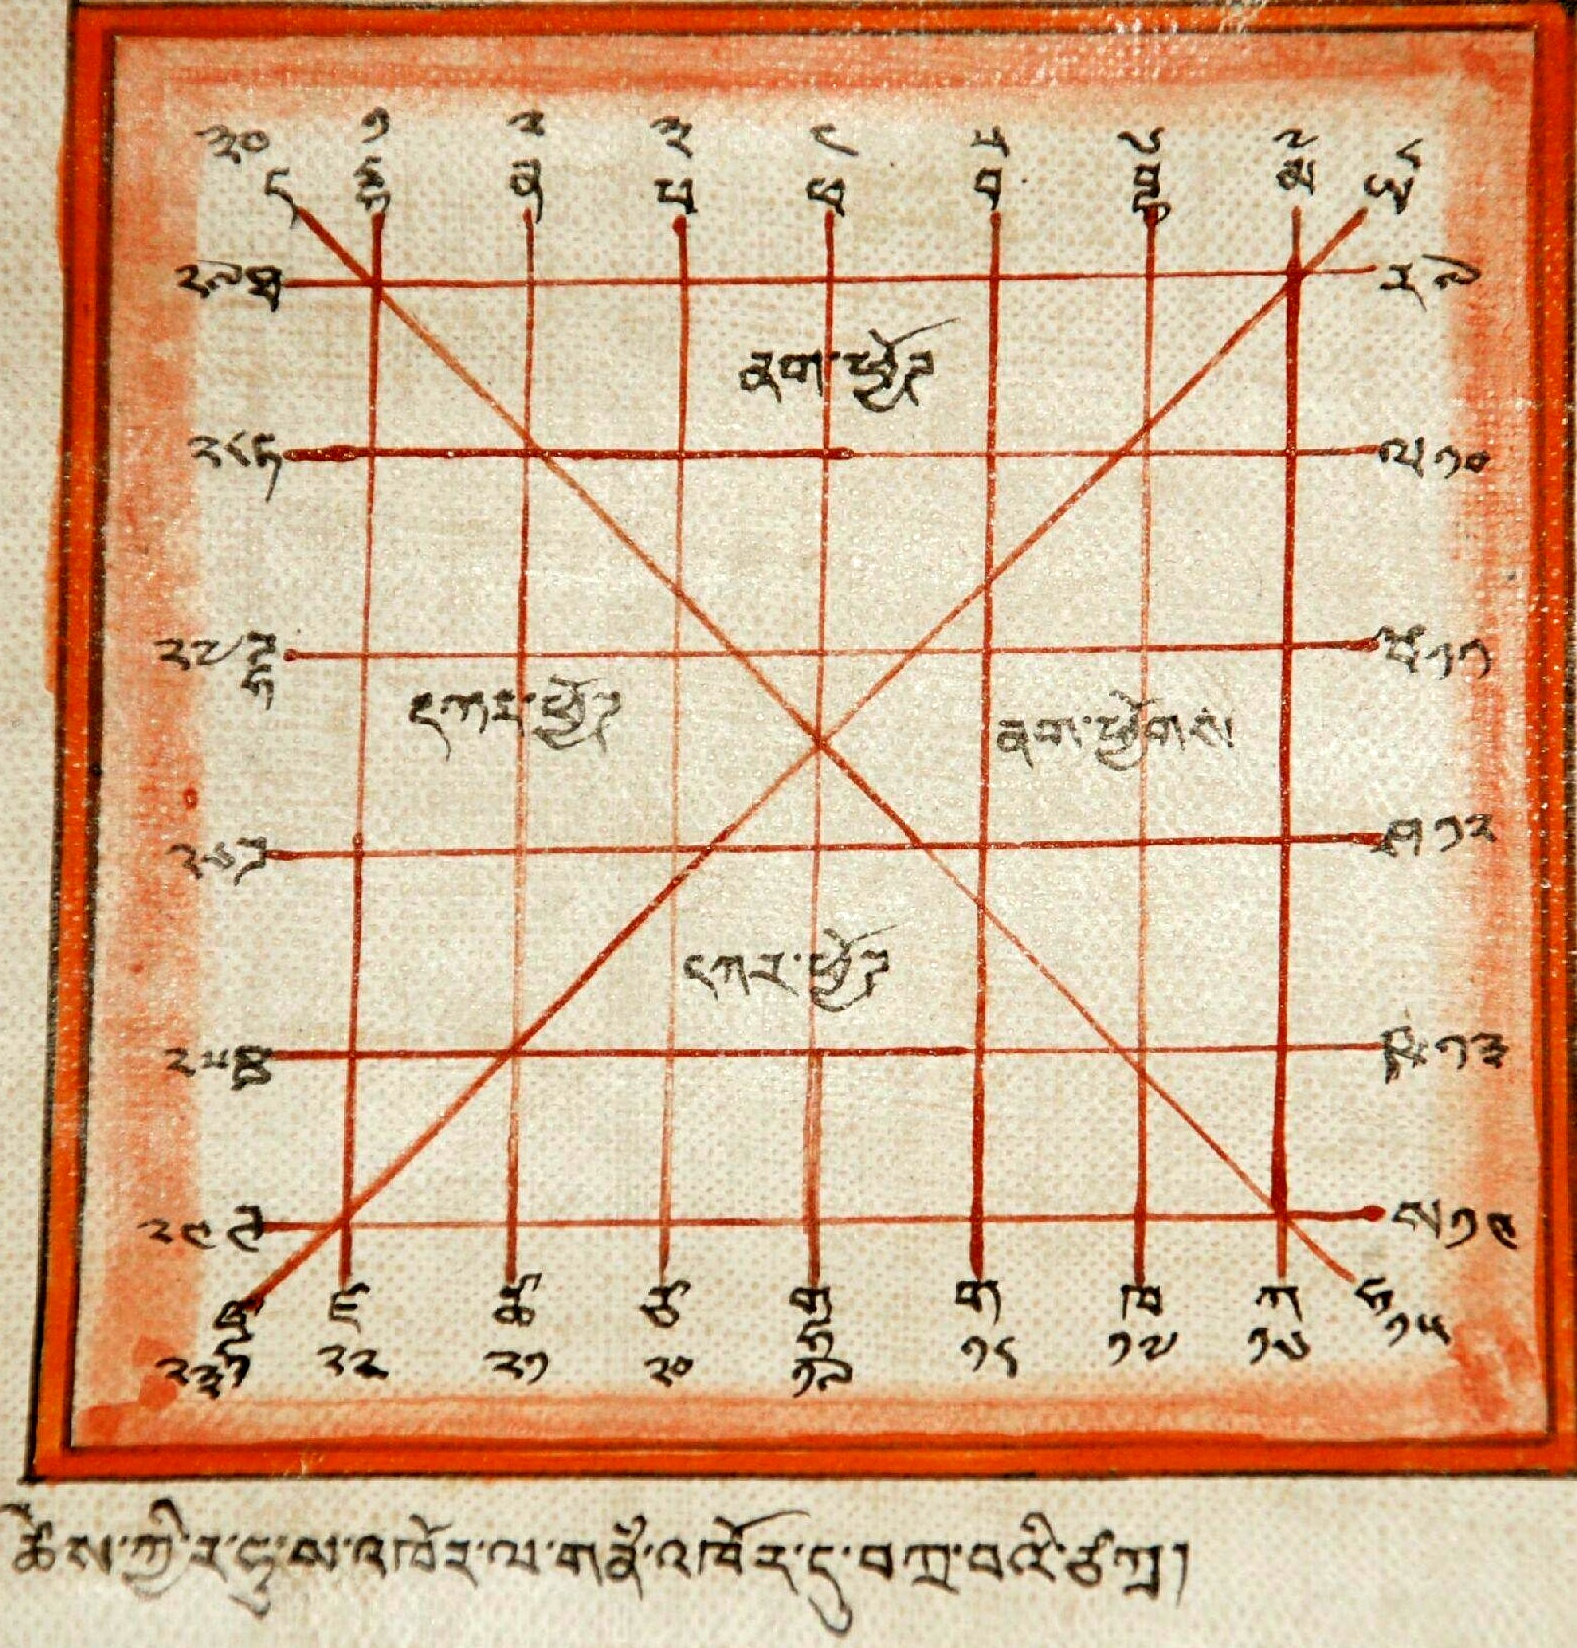 ༣༠ ༡ ༢ ༣ ༤ ༥ ༦ ༧ ༨
ད དྷ ན པ ཕ བ བྷ མ ཡ
༢༩ ཐ ར ༩
ནག་ཕྱོཊ
༢༨ ཏ ལ ༡༠
༢༧ ཌྷ ཝ ༡༡
དཀར་ཕྱོཊ ནག་ཕྱོགས།
༢༦ ཌ ཤ ༡༢
དཀར་ཕྱོཊ
༢༥ ཋ ཥ ༡༣
༢༤ ཊ ས ༡༤
ཛྷ ཛ ཚ ཙ གྷ ག ཁ ཀ ཧ
༢༣ ༢༢ ༢༡ ༢༠ ༡༩ ༡༨ ༡༧ ༡༦ ༡༥
ཚེས་ཀྱི་ར་དུ་ས་འཁོར་ལ་གནོ་འཁོར་དུ་བཀྲ་བའི་ཙཀྲ།